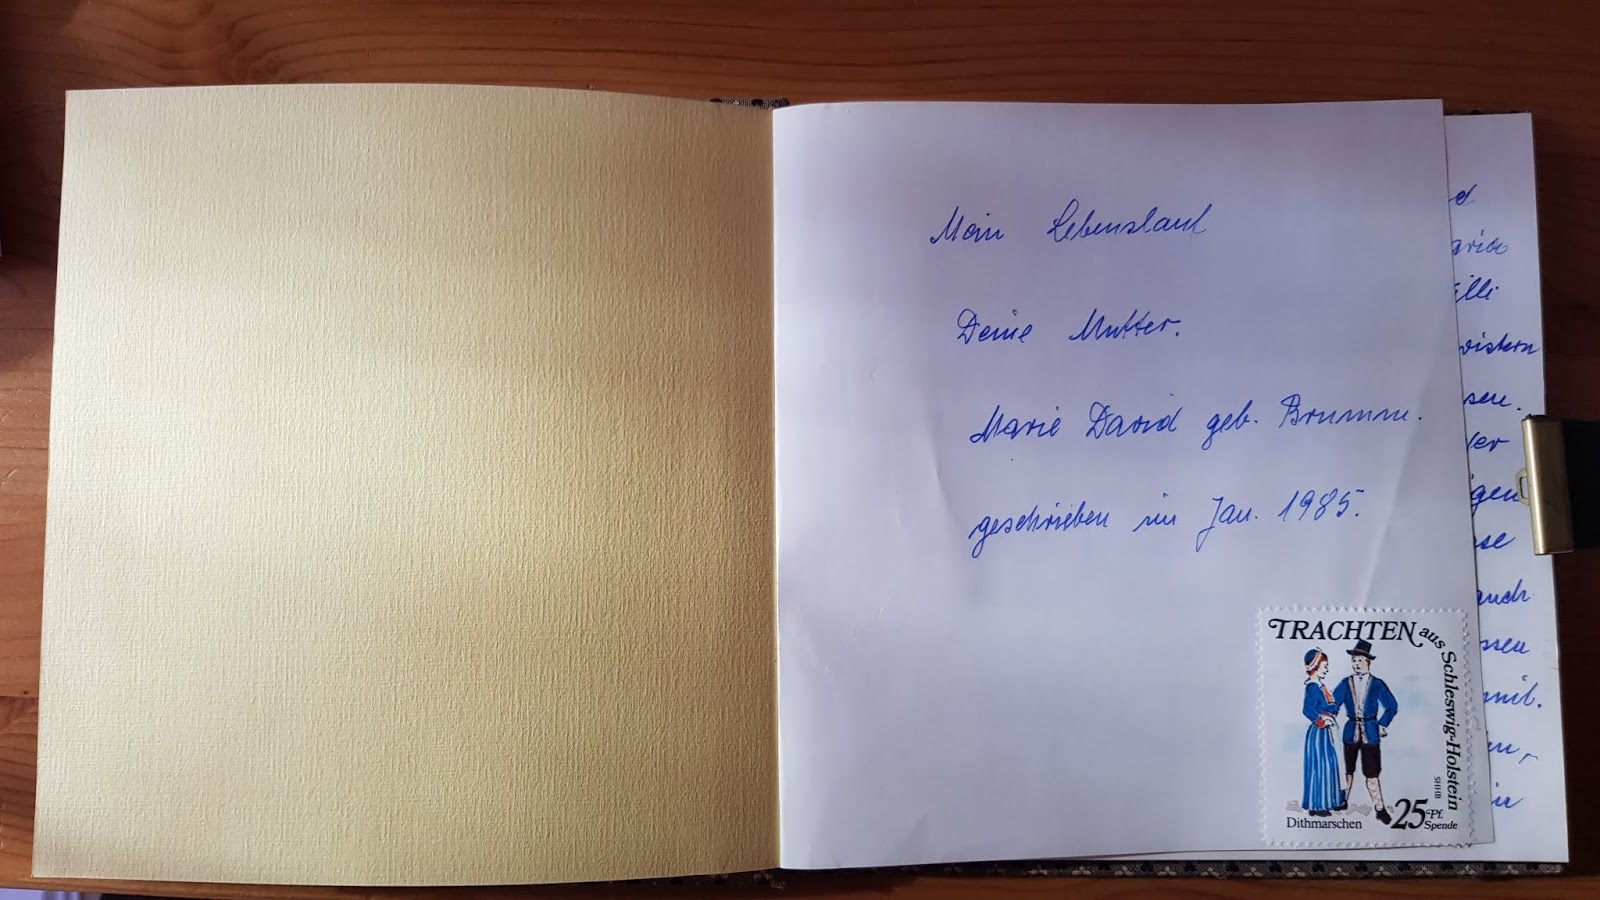 Mein Lebenslauf
Deine Mutter.
Marie David geb. Brumm.
geschrieben im Jan. 1985.
TRACHTEN aus Schleswig-Holstein
SHHB
Dithmarschen
25 Pf. Spende
d
illi
sen.
gen
auch
ssen